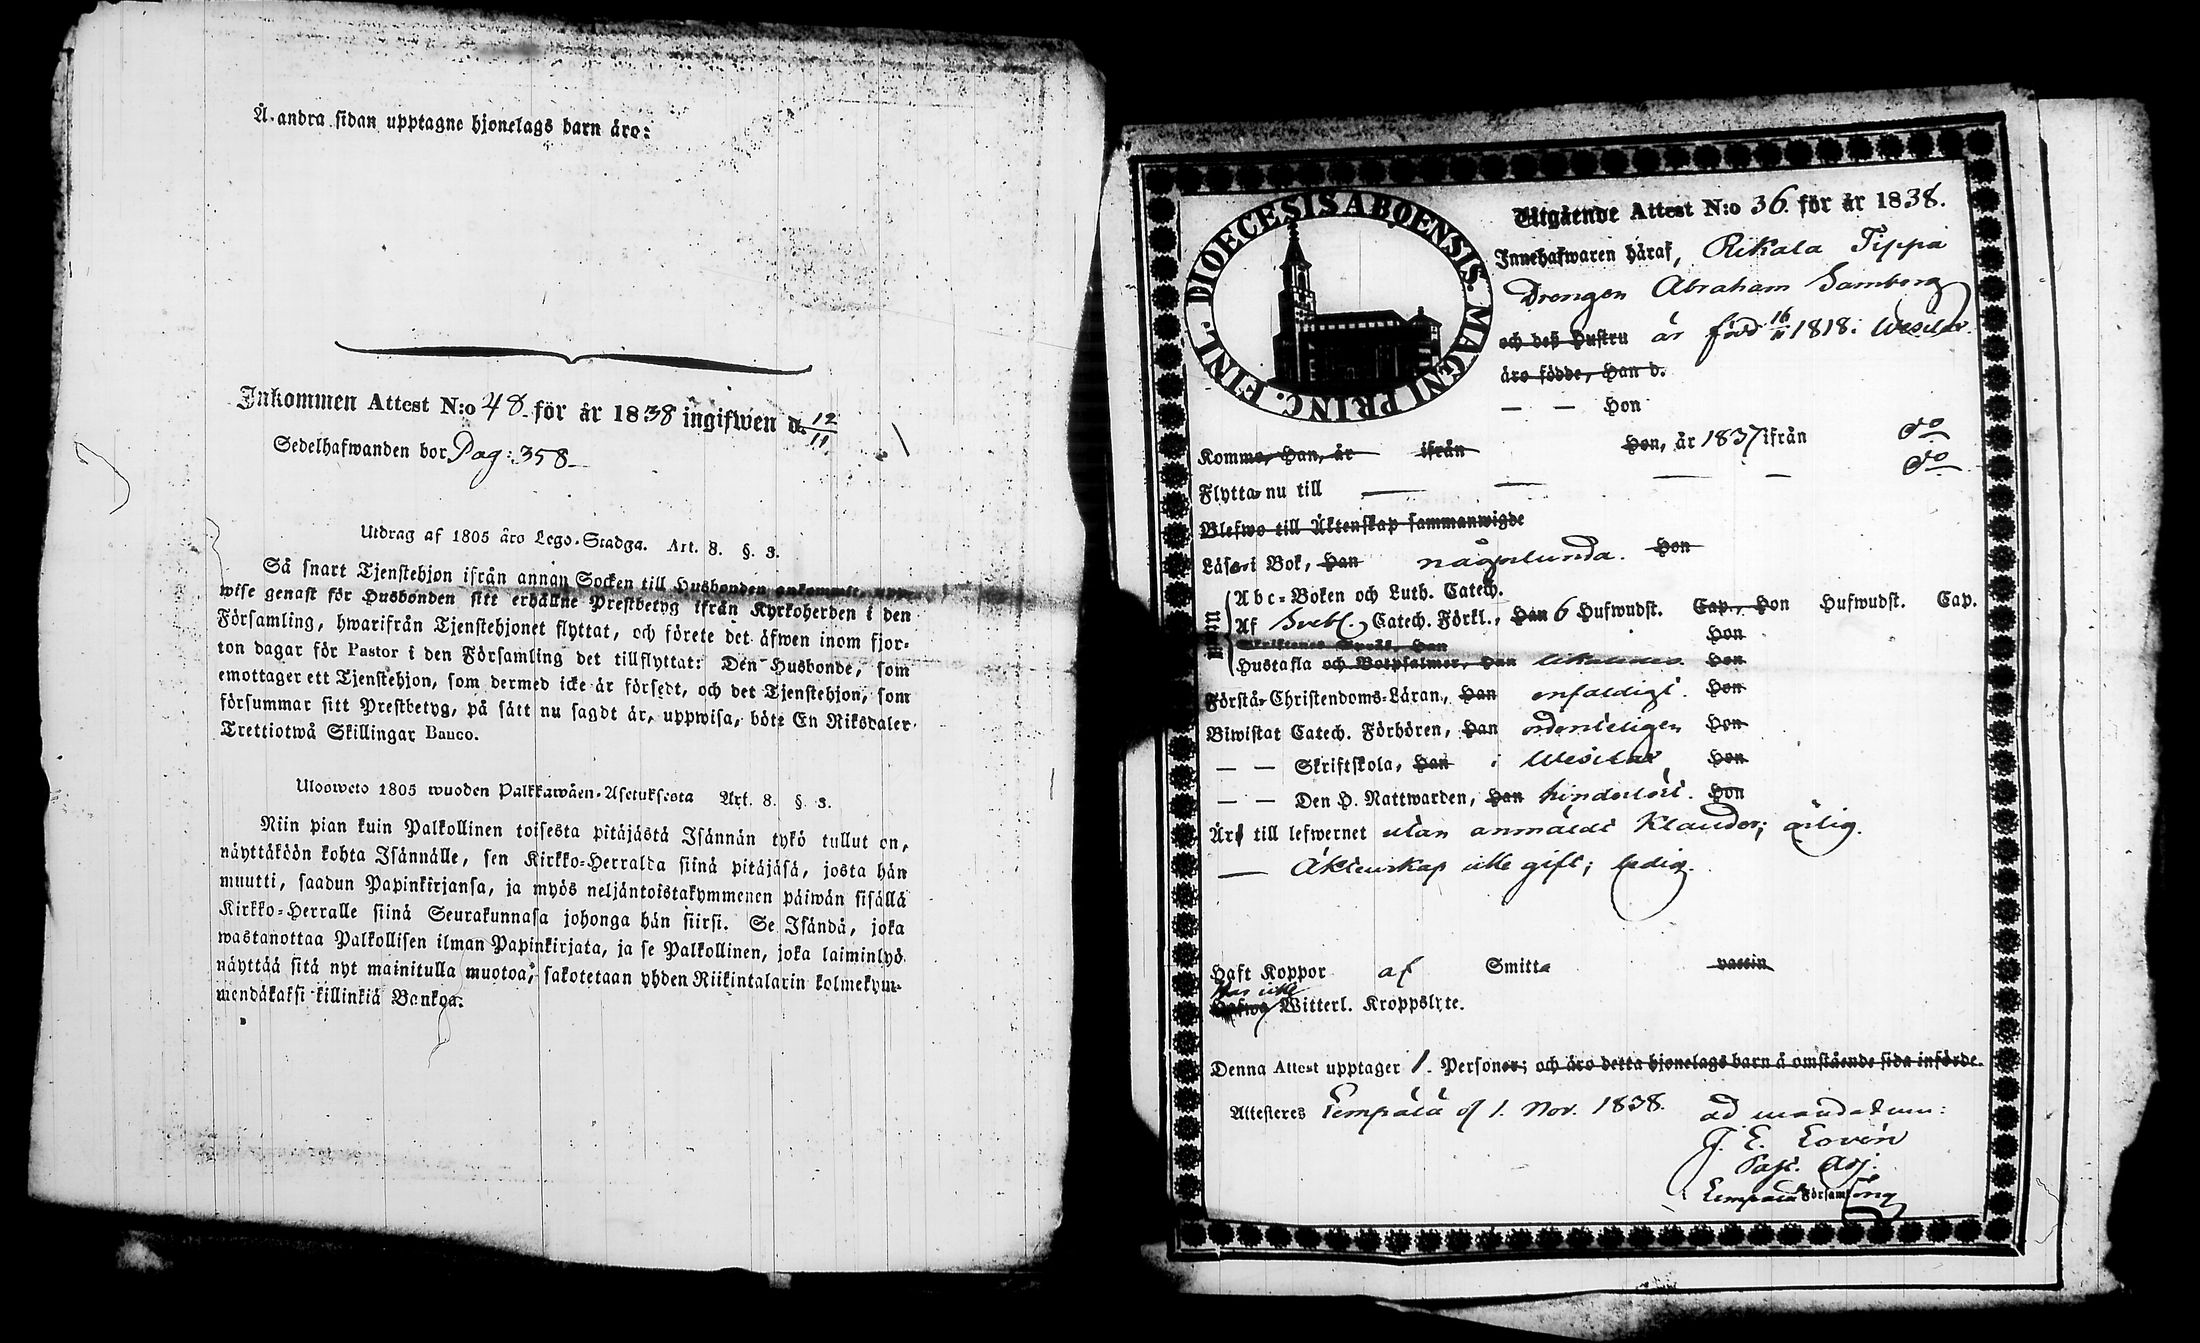 Å andra sidan upptagne hjonelags barn äro:
Inkommen Attest N:o 48. för år 1838 ingifwen d. 12/11
Sedelhafwanden bor Pag: 358
Utdrag af 1805 års Lego-Stadga. Art. 8. §. 3.
Så snart Tjenstehjon ifrån annan Socken till Husbonden ankommit, upp-
wise genast för Husbonden sitt erhållne Prestbetyg ifrån Kyrkoherden i den
Församling, hwarifrån Tjenstehjonet flyttat, och förete det äfwen inom fjor-
ton dagar för Pastor i den Församling det tillflyttat: Den Husbonde, som
emottager ett Tjenstehjon, som dermed icke är försedt, och det Tjenstehjon, som
försummar sitt Prestbetyg, på sätt nu sagdt är, uppwisa, böte En Riksdaler
Trettiotwå Skillingar Banco.
Ulosweto 1805 wuoden Palkkawäen-Asetuksesta Art. 8. §. 3.
Niin pian kuin Palkollinen toisesta pitäjästä Isännän tykö tullut on,
näyttäköön kohta Isännälle, sen Kirkko-Herralda siinä pitäjäsä, josta hän
muutti, saadun Papinkirjansa, ja myös neljäntoistakymmenen päiwän sisällä
Kirkko-Herralle siinä Seurakunnasa johonga hän siirsi. Se Isändä, joka
wastanottaa Palkollisen ilman Papinkirjata, ja se Palkollinen, joka laiminlyö
näyttää sitä nyt mainitulla muotoa, sakotetaan yhden Riikintalarin kolmekym-
mendäkaksi killinkiä Bankoa.
DIOECESIS ABOENSIS. MAGNI PRINC. FINL.
Utgående Attest N:o 36. för år 1838.
Innehafwaren häraf, Rikala Tippa
Drengen Abraham Samberg
och deß Hustru är född 16/11 1818 i Wesilax.
äro födde, Han d.
— — Hon
Komme, Han, år ifrån Hon, år 1837 ifrån do
Flytta nu till — — — — do
Blefwo till Äktenskap sammanwigde
Läser i Bok, Han någorlunda. Hon
Utan
Abc-Boken och Luth. Catech.
Af Svebel. Catech. Förkl., Han 6 Hufwudst. Cap., Hon Hufwudst. Cap.
Skriftenes Språk, Han Hon
Hustafla och Botpsalmer, Han Hon
Förstår Christendoms-Läran, Han enfaldigt. Hon
Biwistat Catech. Förhören, Han ordenteligen Hon
— — Skriftskola, Han i Wesilax Hon
— — Den H. Nattwarden, Han hinderlöst. Hon
Är till lefwernet utan anmäldt klander; ärlig.
— Äktenskap icke gift; ledig.
Haft Koppor af Smitta vaccin
Har icke
Hafwa Witterl. Kroppslyte.
Denna Attest upptager 1. Personer; och äro detta hjonelags barn å omstående sida införde.
Attesteres Lempälä d. 1. Nov. 1838. ad mandatum:
J. E. Lovén
Past. Adj.
i Lempälä Församling